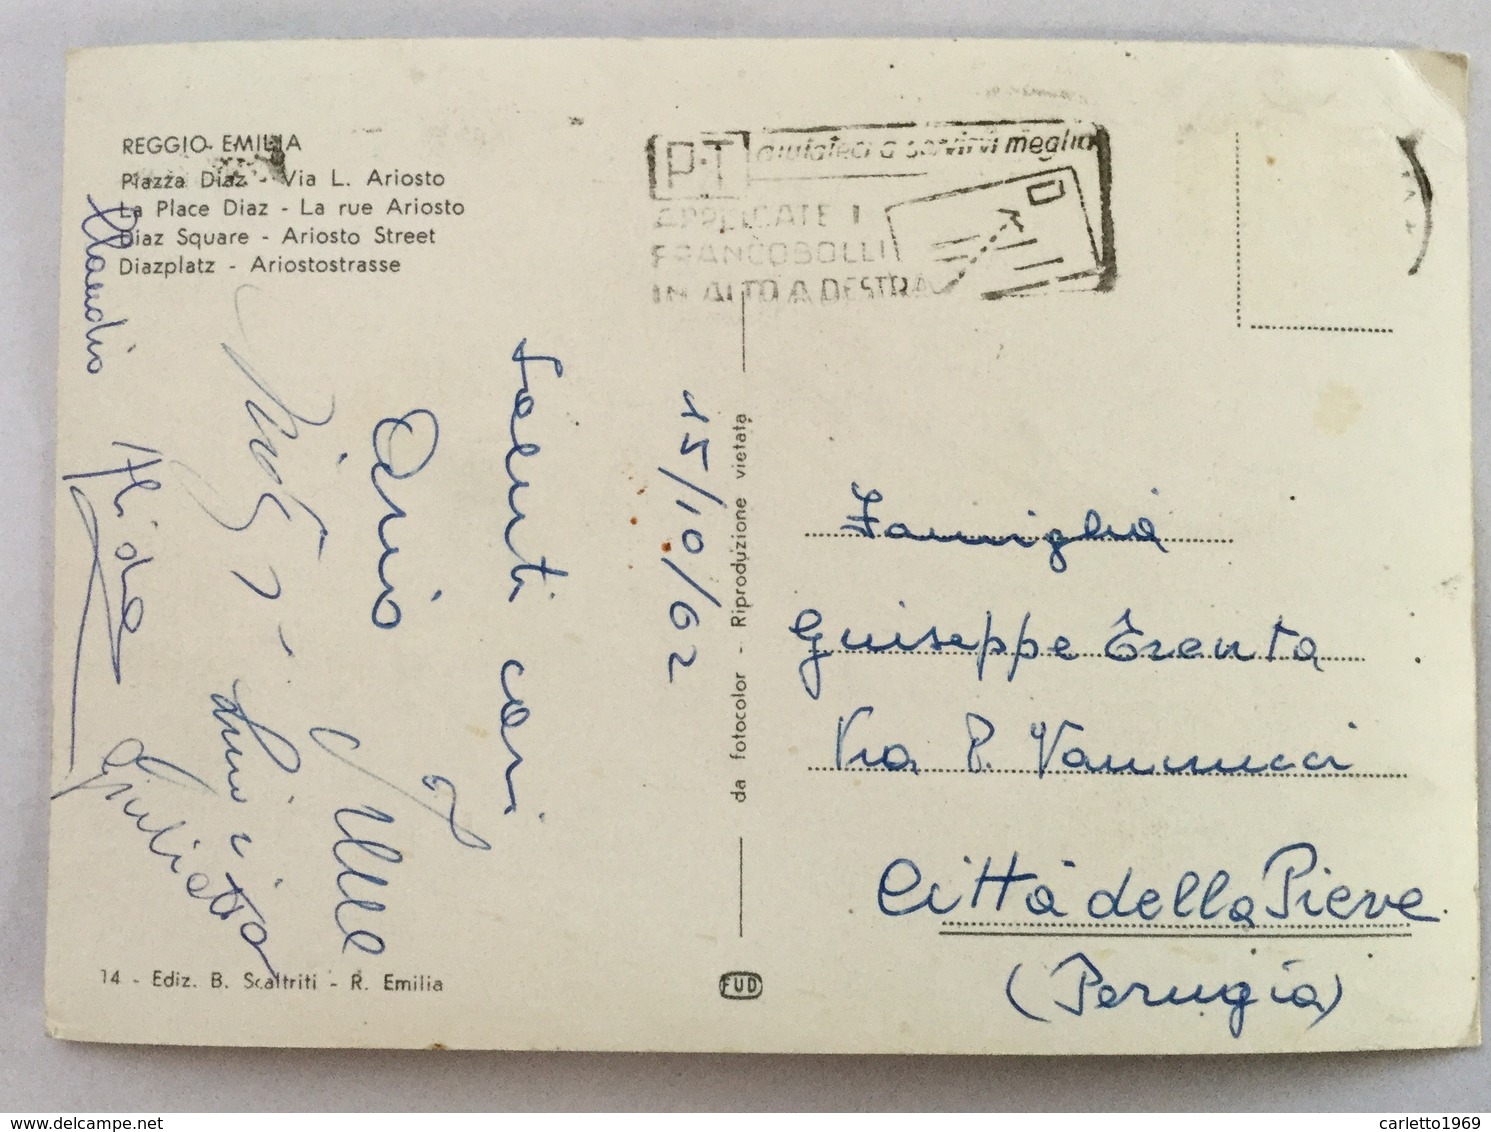 REGGIO EMILIA
Piazza Diaz - Via L. Ariosto
La Place Diaz - La rue Ariosto
Diaz Square - Ariosto Street
Diazplatz - Ariostostrasse
P.T aiutateci a servirvi meglio
APPLICATE I
FRANCOBOLLI
IN ALTO A DESTRA
15/10/62
Saluti cari
Claudio
Alida
Giulietta
da fotocolor - Riproduzione vietata
Famiglia
Giuseppe Trenta
Via P. Vannucci
Città della Pieve
(Perugia)
14 - Ediz. B. Scaltriti - R. Emilia
FUD
delcampe.net
carletto1969